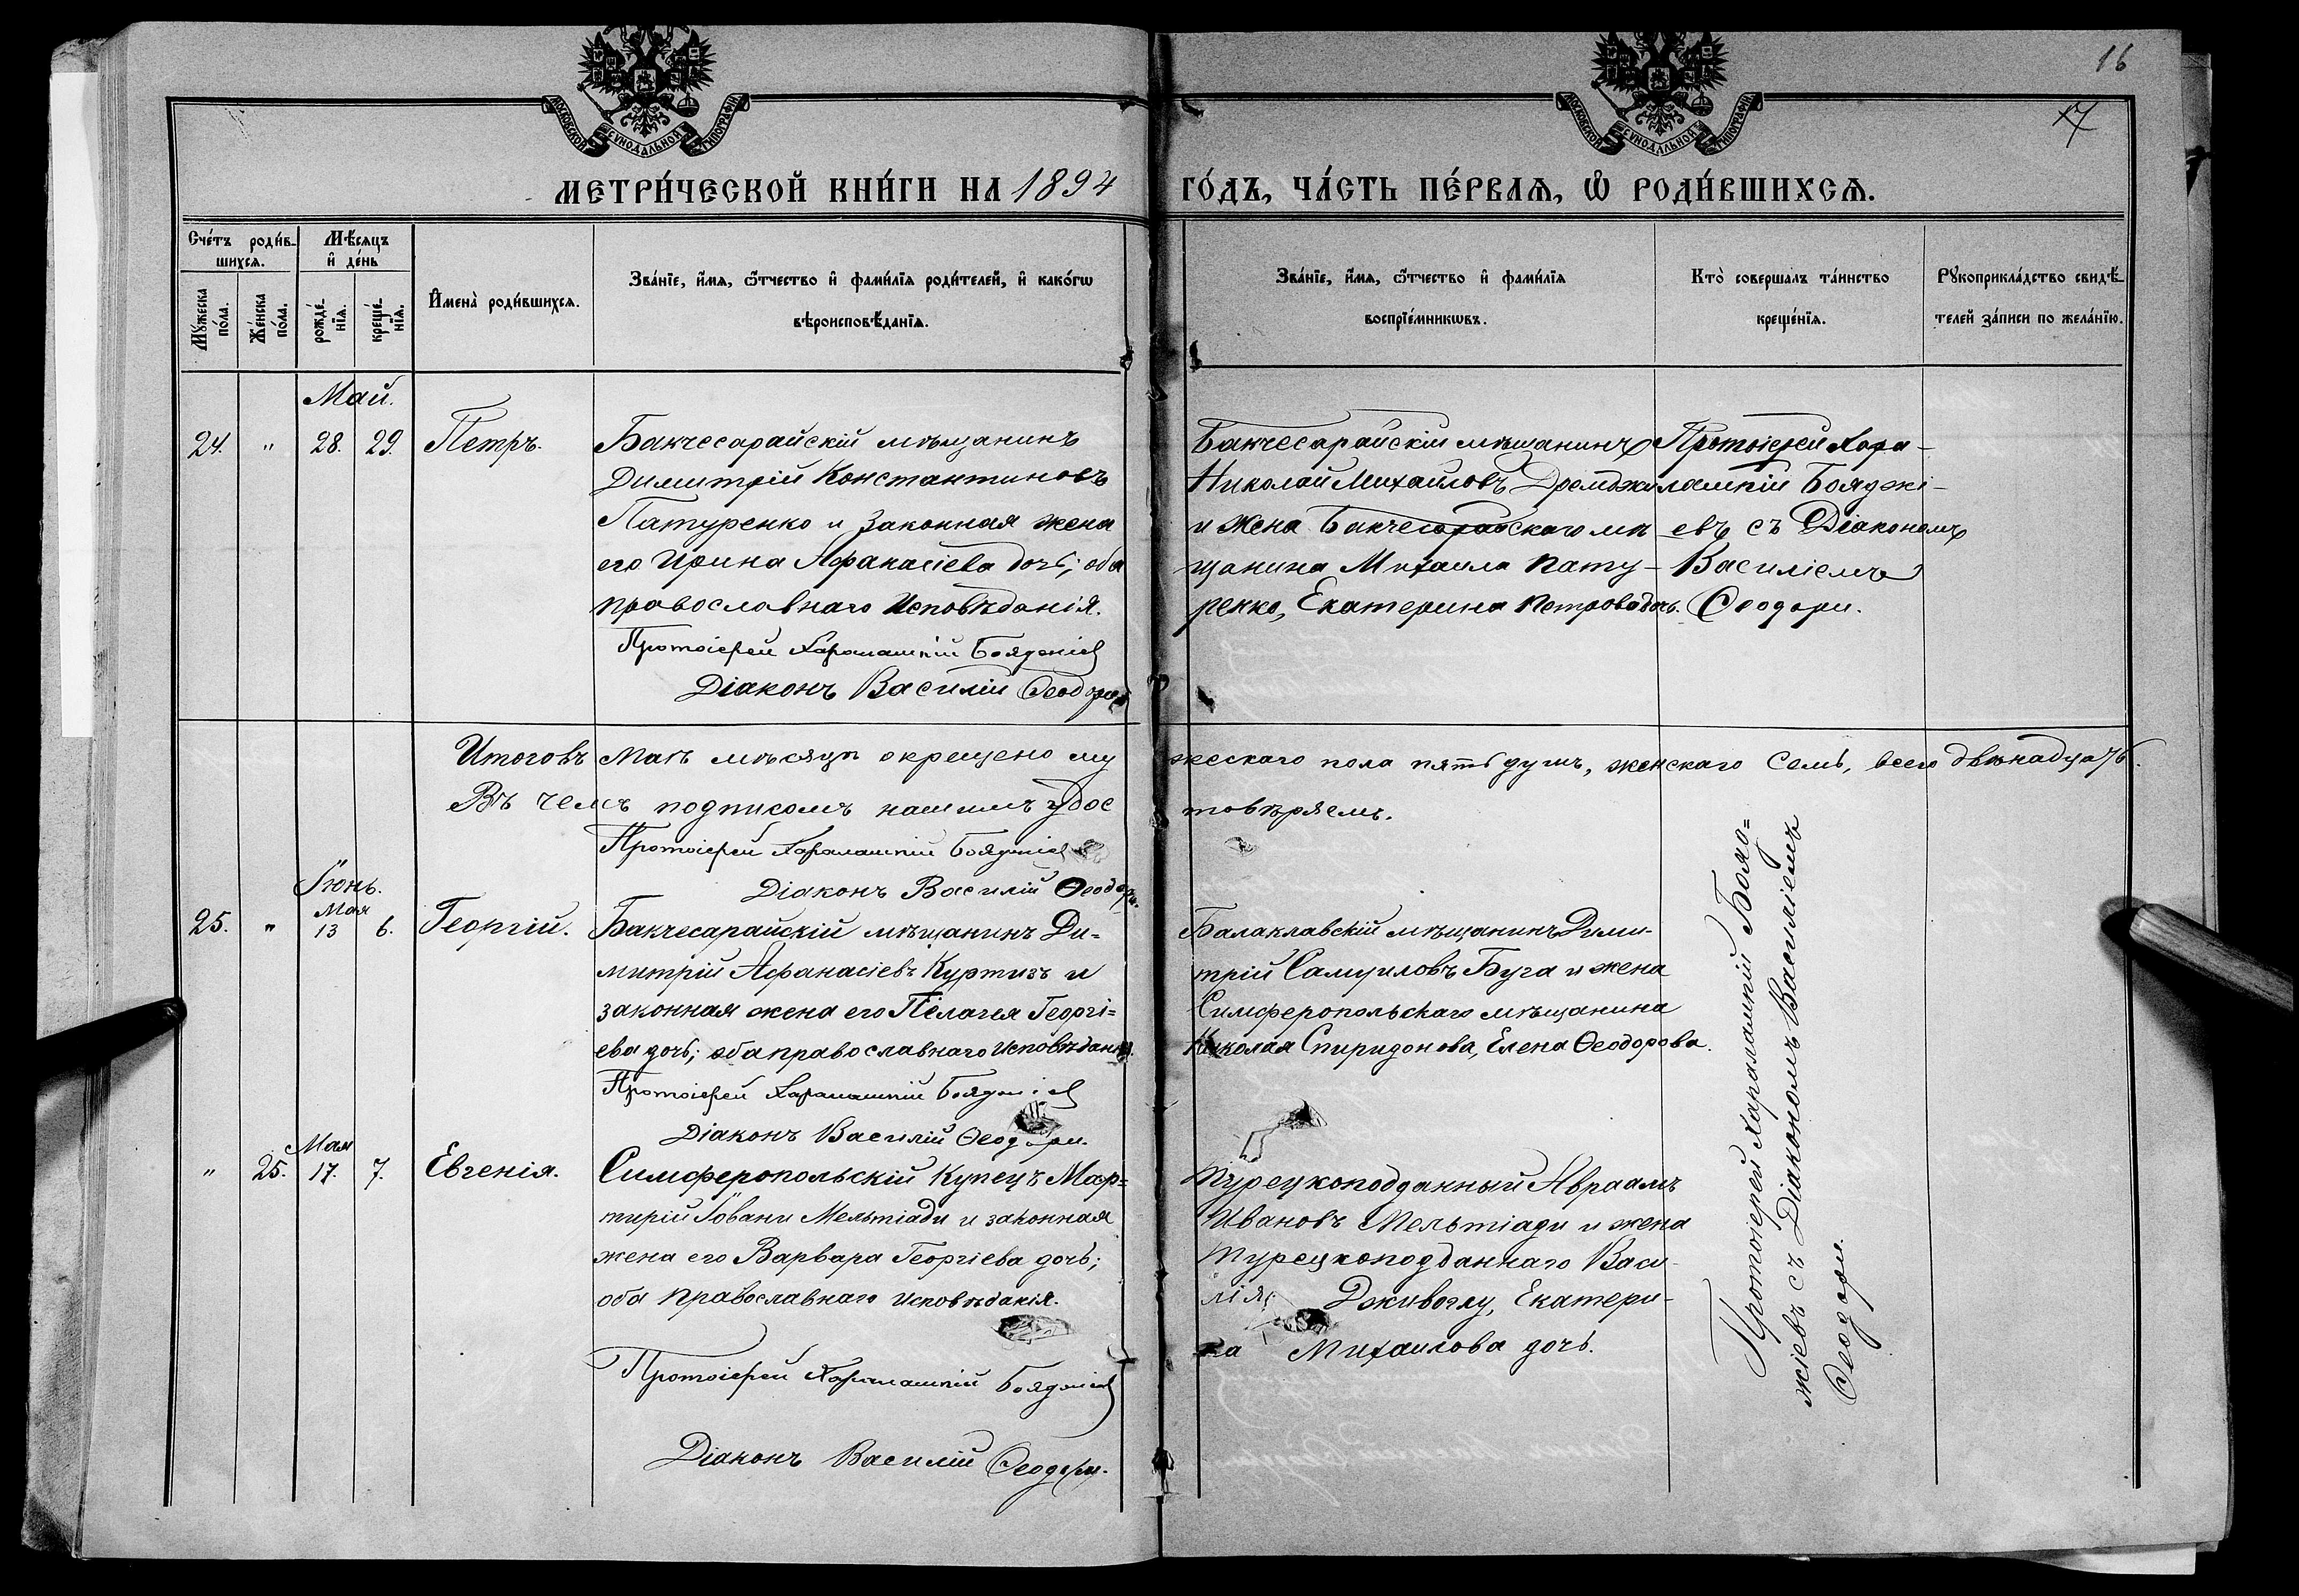 16
17
МОСКОВСКОЙ СѴНОДАЛЬНОЙ ТИПОГРАФІИ
МОСКОВСКОЙ СѴНОДАЛЬНОЙ ТИПОГРАФІИ
МЕТРИ́ЧЕСКОЙ КНИ́ГИ НА 1894 ГО́ДЪ, ЧА́СТЬ ПЕ́РВАЯ, Ѡ РОДИ́ВШИХСЯ.
Сче́тъ роди́в-
шихся.
Мꙋ́жеска по́ла.
Же́нска по́ла.
Мѣ́сяцъ
и҆ де́нь
рожде́-
нїя.
креще́-
нїя.
И҆мена̀ роди́вшихся.
Зва́нїе, и҆́мя, ѻ҆́тчество и҆ фами́лїя роди́телей, и҆ како́гѡ
вѣроисповѣ́данїя.
Зва́нїе, и҆́мя, ѻ҆́тчество и҆ фами́лїя
воспрїе́мникѡвъ.
Кто̀ соверша́лъ та́инство
креще́нїя.
Рꙋкоприкла́дство свидѣ́-
телей за́писи по жела́нїю.
Май.
24. " 28. 29. Петръ.
Бакчесарайскій мѣщанинъ
Димитрій Константиновъ
Патуренко и законная жена
его Ирина Афанасіева дочь; оба
православнаго Исповѣданія.
Протоіерей Харалампій Бояджіев
Діаконъ Василій Ѳеодори
Бакчесарайскій мѣщанинъ
Николай Михайловъ Дремджи
и жена Бакчесарайскаго мѣ
щанина Михаила Пату-
ренко, Екатерина Петрова дочь.
Протоіерей Хара-
лампій Бояджі-
евъ съ Діакономъ
Василіемъ
Ѳеодори.
Итого въ Маѣ мѣсяцѣ окрещено му жескаго пола пять душъ, женскаго семь, всего двѣнадцать.
Въ чемъ подписомъ нашимъ удос товѣряемъ.
Протоіерей Харалампій Бояджіев
Діаконъ Василій Ѳеодори.
Іюнь.
Мая
25. " 13 6. Георгій.
Бакчесарайскій мѣщанинъ Ди=
митрій Афанасіевъ Куртизъ и
законная жена его Пелагея Георгі=
ева дочь; оба православнаго Исповѣданія.
Протоіерей Харалампій Бояджіев
Діаконъ Василій Ѳеодори.
Балаклавскій мѣщанинъ Дими-
трій Самуиловъ Буга и жена
Симферопольскаго мѣщанина
Николая Спиридонова, Елена Ѳеодорова.
Мая
" 25. 17. 7. Евгенія.
Симферопольскій Купецъ Мар=
тирій Іовани Мельтіади и законная
жена его Варвара Георгіева дочь;
оба Православнаго Исповѣданія.
Протоіерей Харалампій Бояджіев
Діаконъ Василій Ѳеодори.
Турецкоподданный Авраамъ
Ивановъ Мельтіади и жена
Турецкоподданнаго Васи-
лія Дживоглу, Екатери-
на Михаилова дочь.
Протоіерей Харалампій Бояд=
жіевъ съ Діакономъ Василіемъ
Ѳеодори.